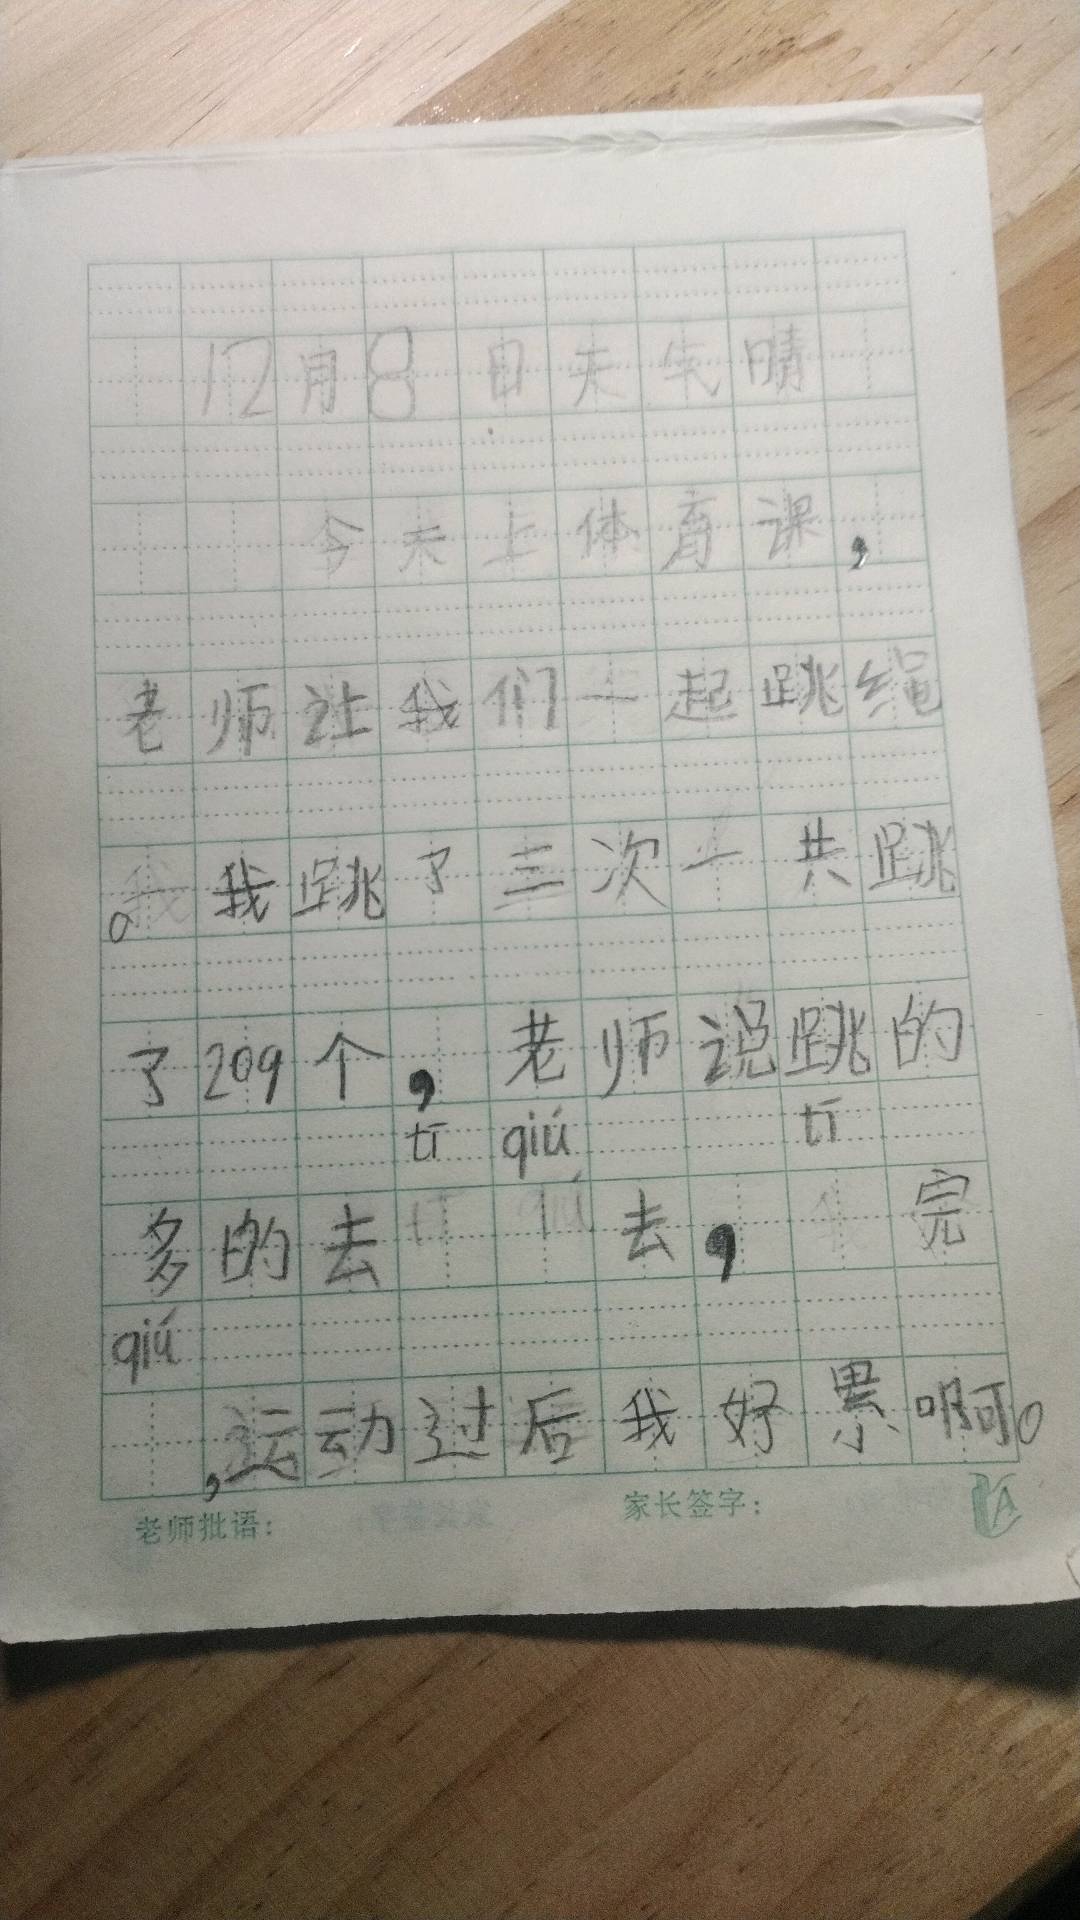 12月8日天气晴
今天上体育课,
老师让我们一起跳绳
。我跳了三次一共跳
了209个,老师说跳的
tī qiú tī
多的去去,完
qiú
,运动过后我好累啊。
老师批语: 家长签字: